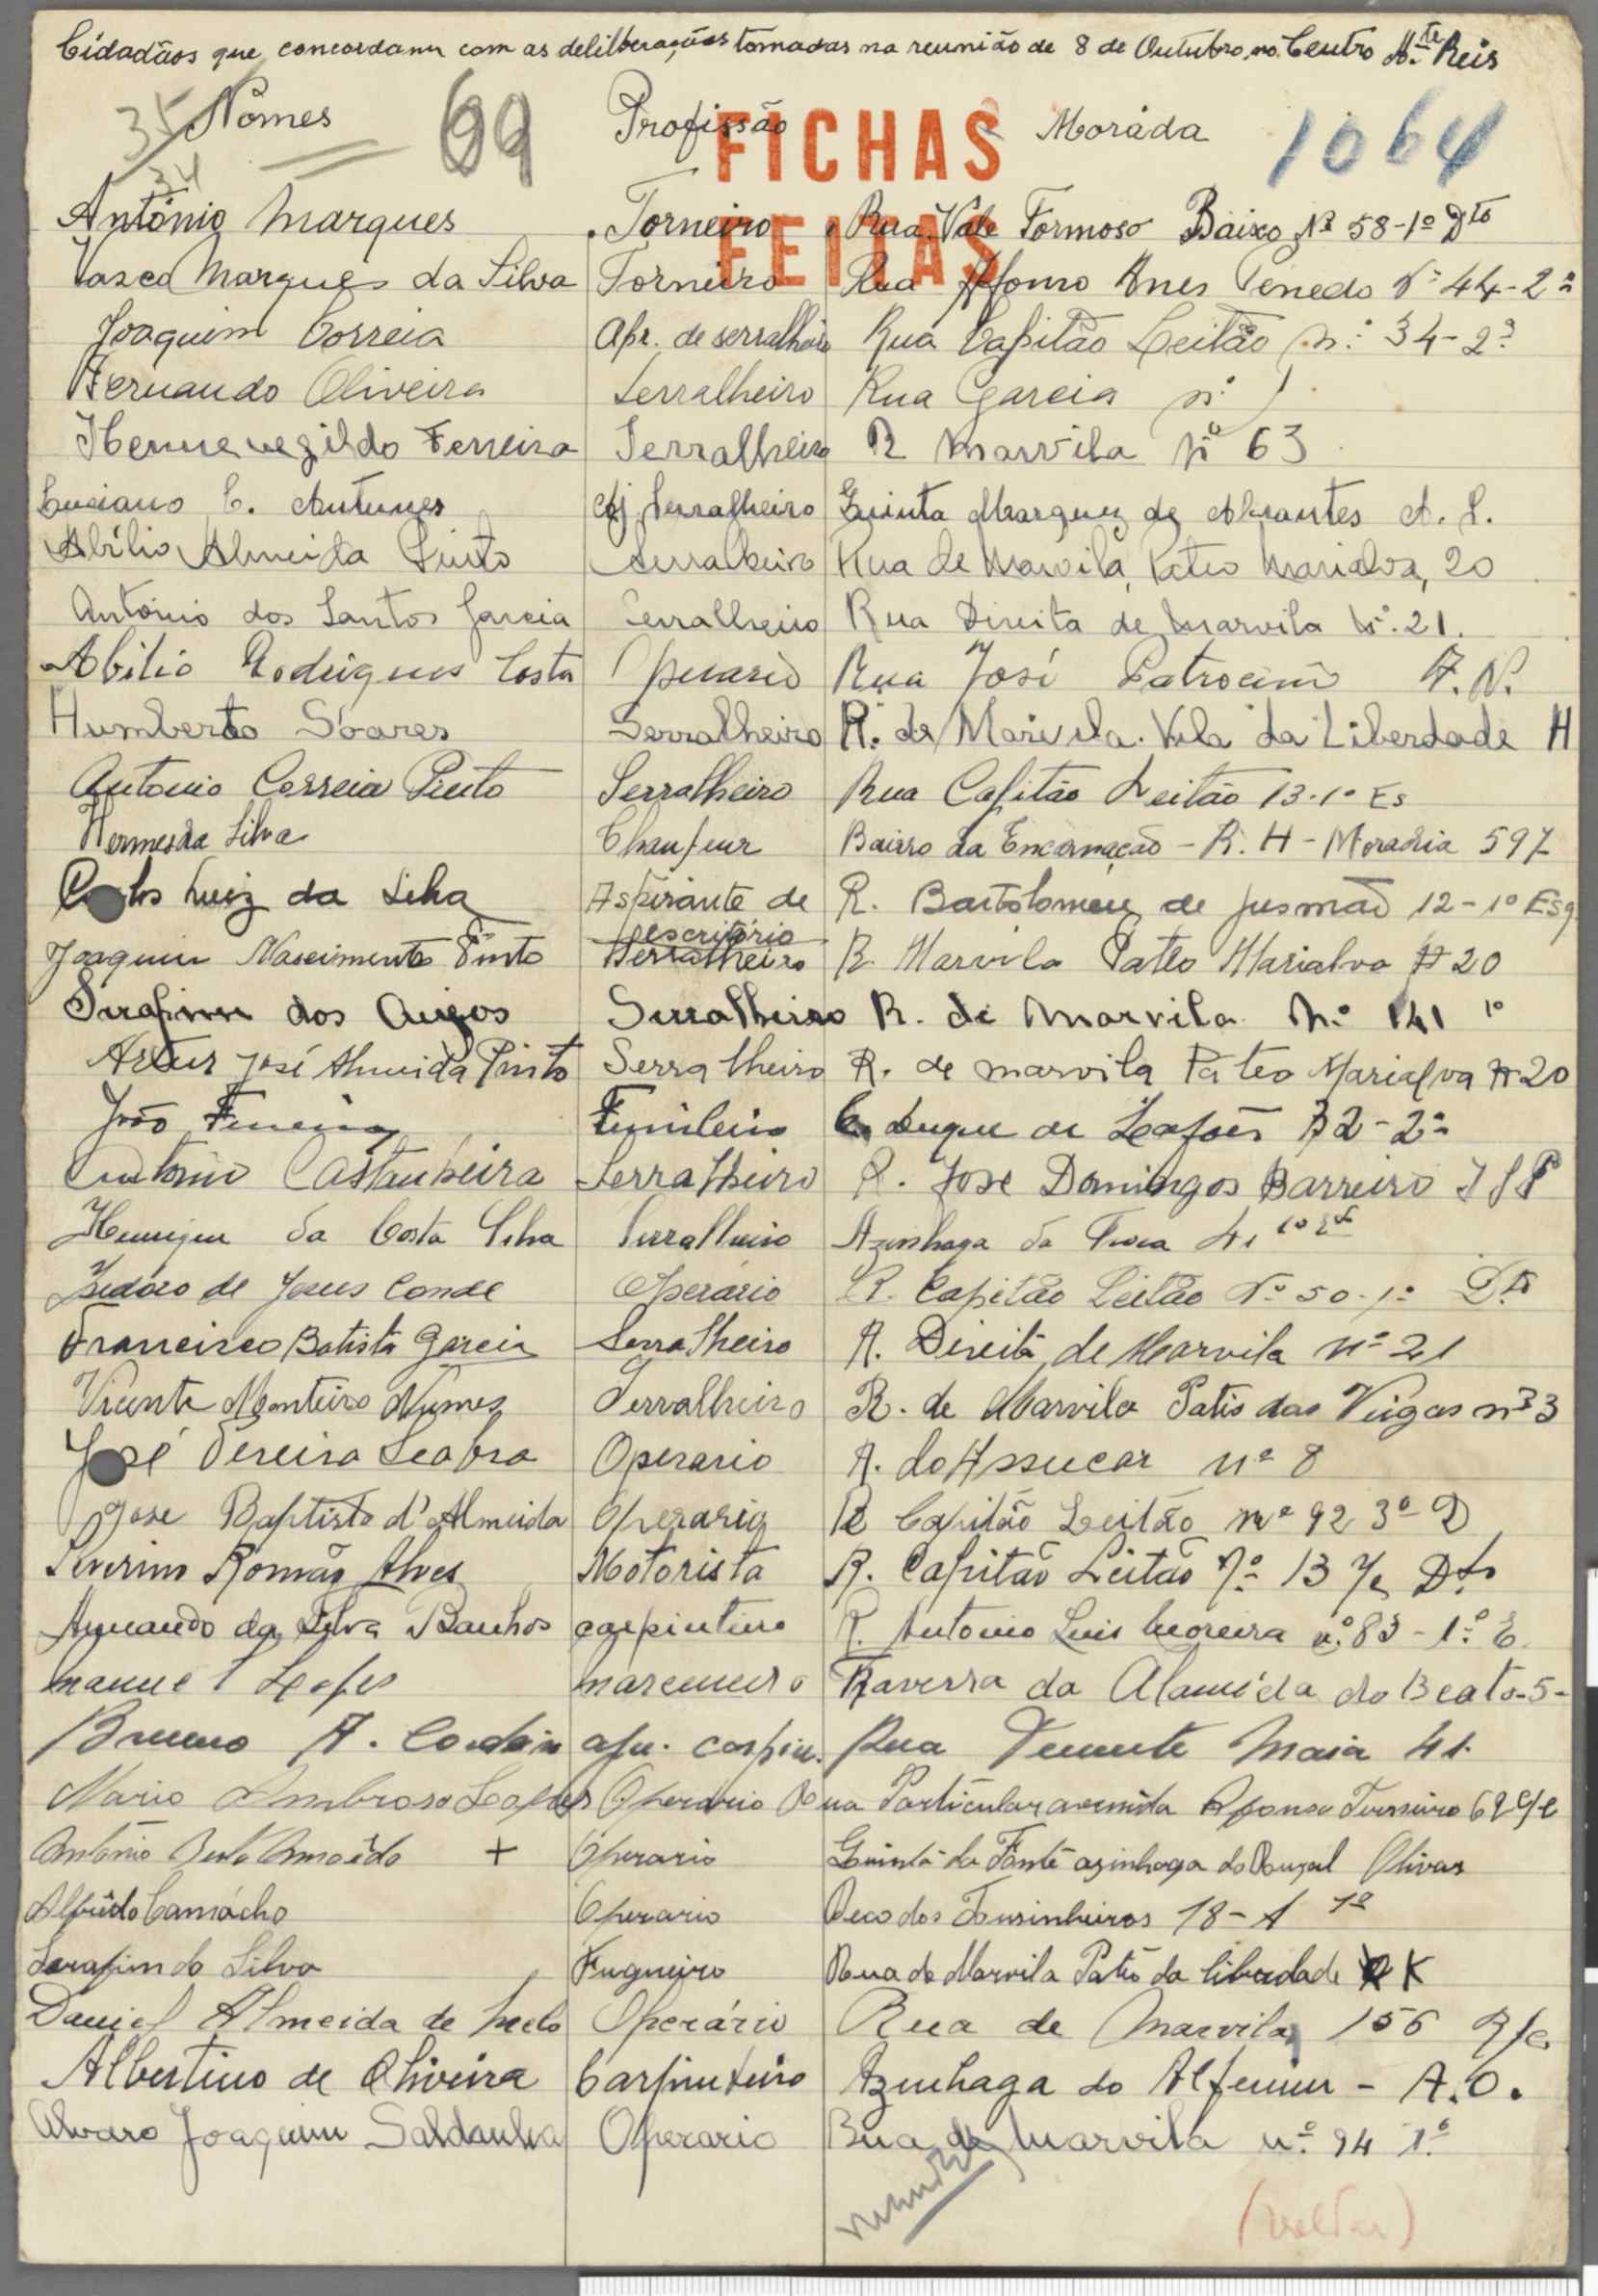 Cidadãos que concordam com as deliberações tomadas na reunião de 8 de Outubro, no Centro Alte Reis
35 Nomes 69 Profissão Moráda 1064
34
FICHAS
FEITAS
António Marques Torneiro Rua Vale Formoso Baixo Nº 58-1º Dto
Vasco Marques da Silva Torneiro Rua Afonso Anes Penedo Nº 44-2º
Joaquim Correia Apr. de serralheiro Rua Capitão Leitão n.º 34-2º
Fernando Oliveira Serralheiro Rua Garcia nº 1
Hermenegildo Ferreira Serralheiro R Marvila Nº 63
Luciano C. Antunes Aj. Serralheiro Quinta Marquez de Abrantes A. L.
Abílio Almeida Pinto Serralheiro Rua de Marvila, Pateo Marialva, 20
António dos Santos Garcia Serralheiro Rua Direita de Marvila Nº. 21.
Abilio Rodrigues Costa Operario Rua José Patrocinio
Humberto Soares Serralheiro R. de Marvila. Vila da Liberdade H
Antonio Correia Pinto Serralheiro Rua Capitão Leitão 13-1º Es
Hermes da Silva Chaufeur Bairro da Encarnação - R. H - Moradia 597
Carlos Luiz da Silva Aspirante de R. Bartolomeu de Gusmão 12-1º Esq
escritório
Joaquim Nascimento Pinto Serralheiro R. Marvila Pateo Marialva Nº 20
Serafim dos Anjos Serralheiro R. de Marvila Nº 141 1º
Artur José Almeida Pinto Serralheiro R. de Marvila Páteo Marialva Nº 20
João Ferreira Funileiro C. Duque de Lafões 32-2º
Antonio Castanheira Serralheiro R. José Domingos Barreiro J S P
Henrique da Costa Silva Serralheiro Azinhaga da 41 1º
Izidóro de Jesus Conde Operário R. Capitão Leitão Nº 50-1º Dto
Francisco Batista Garcia Serralheiro R. Direita de Marvila nº 21
Vicente Monteiro Nunes Serralheiro R. de Marvila Patio das Veigas nº 3
José Pereira Seabra Operario R. do Assucar nº 8
Jose Baptista d'Almeida Operario R Capitão Leitão nº 92 3º D
Severino Romão Alves Motorista R. Capitão Leitão Nº 13 Dto
Armando da Silva Banhos carpinteiro R. Antonio Luis Moreira nº 83-1º E.
Manuel Lopes marceneiro Travessa da Alameda do Beato-5-
Bruno A. apr. carpin. Rua Tenente Maia 41.
Mario Ambroso Lopes Operario Rua Particular avenida Afonso 62
António + Operario Quinta da Fonte azinhaga do Olivais
Alfrêdo Camácho Operario Beco dos Toucinheiros 18-A 1º
Serafim da Silva Fugueiro Rua de Marvila Patio da liberdade K
Daniel Almeida de Melo Operário Rua de Marvila, 156 R/c.
Albertino de Oliveira Carpinteiro Azinhaga do Alfenim - A.O.
Alvaro Joaquim Saldanha Operario Rua de Marvila nº 94 1º
(voltar)